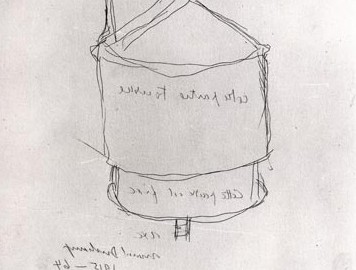 cette partie tourne
cette partie est fixe
axe
Marcel Duchamp
1915 — 64